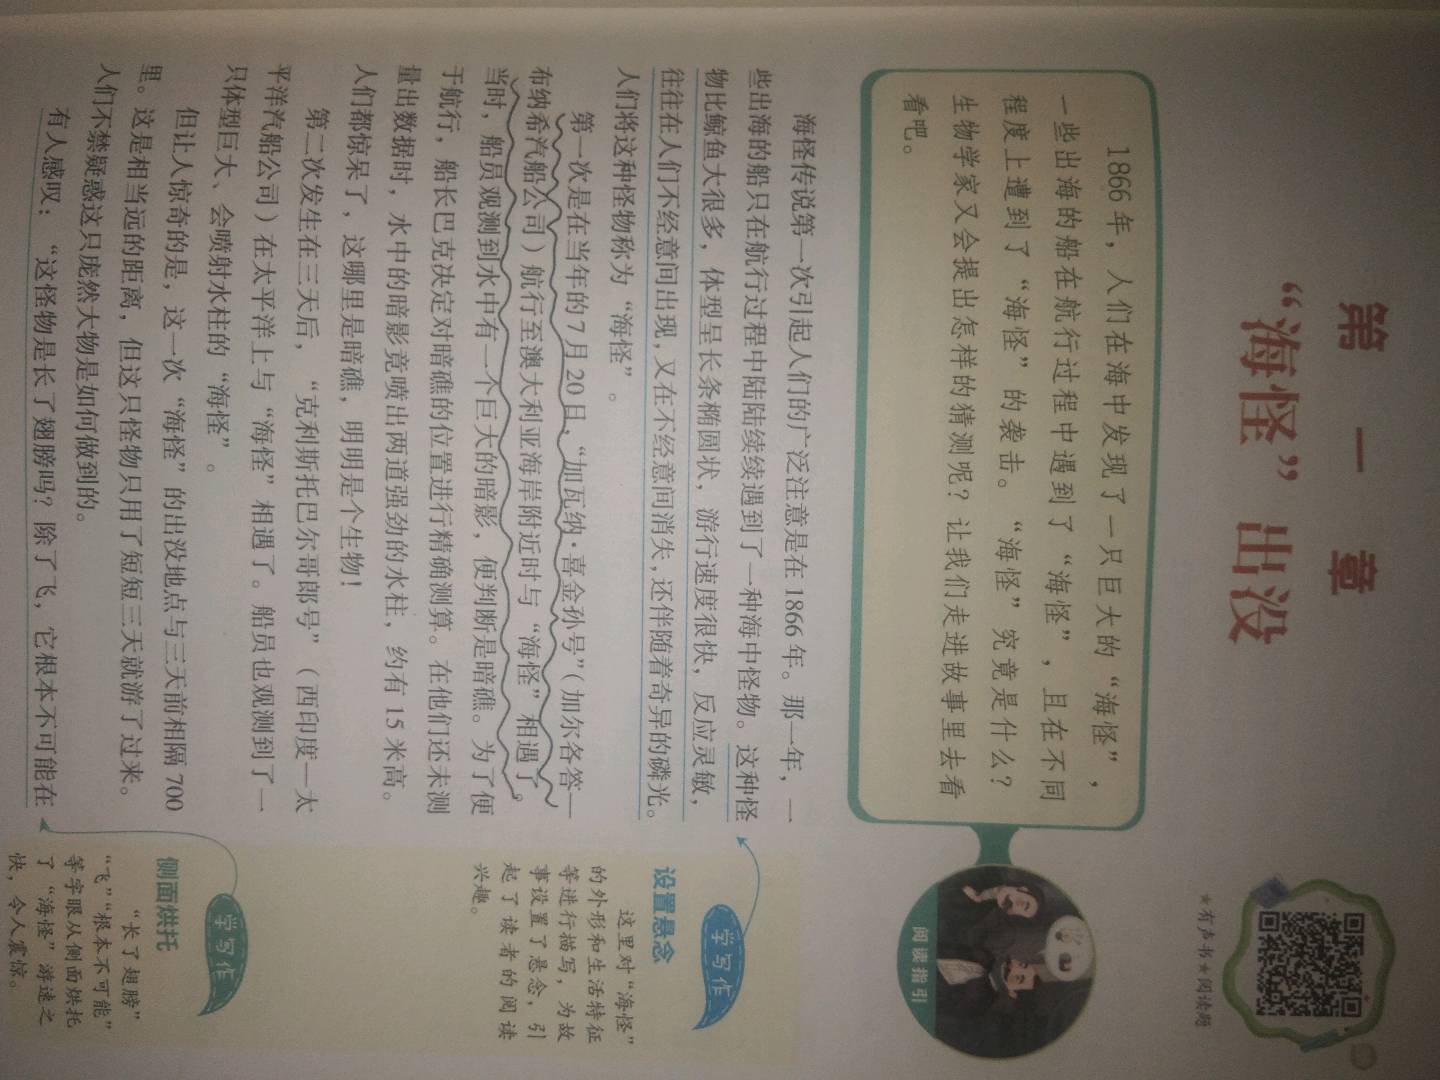 第一章
“海怪”出没
★有声书★阅读题
1866年，人们在海中发现了一只巨大的“海怪”，
一些出海的船在航行过程中遇到了“海怪”，且在不同
程度上遭到了“海怪”的袭击。“海怪”究竟是什么？
生物学家又会提出怎样的猜测呢？让我们走进故事里去看
看吧。
阅读指引
海怪传说第一次引起人们的广泛注意是在1866年。那一年，一
些出海的船只在航行过程中陆陆续续遇到了一种海中怪物。这种怪
物比鲸鱼大很多，体型呈长条椭圆状，游行速度很快，反应灵敏，
往往在人们不经意间出现，又在不经意间消失，还伴随着奇异的磷光。
人们将这种怪物称为“海怪”。
第一次是在当年的7月20日，“加瓦纳·喜金孙号”（加尔各答—
布纳希汽船公司）航行至澳大利亚海岸附近时与“海怪”相遇了。
当时，船员观测到水中有一个巨大的暗影，便判断是暗礁。为了便
于航行，船长巴克决定对暗礁的位置进行精确测算。在他们还未测
量出数据时，水中的暗影竟喷出两道强劲的水柱，约有15米高。
人们都惊呆了，这哪里是暗礁，明明是个生物！
第二次发生在三天后，“克利斯托巴尔哥郎号”（西印度—太
平洋汽船公司）在太平洋上与“海怪”相遇了。船员也观测到了一
只体型巨大、会喷射水柱的“海怪”。
但让人惊奇的是，这一次“海怪”的出没地点与三天前相隔700
里。这是相当远的距离，但这只怪物只用了短短三天就游了过来。
人们不禁疑惑这只庞然大物是如何做到的。
有人感叹：“这怪物是长了翅膀吗？除了飞，它根本不可能在
学写作
设置悬念
这里对“海怪”
的外形和生活特征
等进行描写，为故
事设置了悬念，引
起了读者的阅读
兴趣。
学写作
侧面烘托
“长了翅膀”
“飞”“根本不可能”
等字眼从侧面烘托
了“海怪”游速之
快，令人震惊。